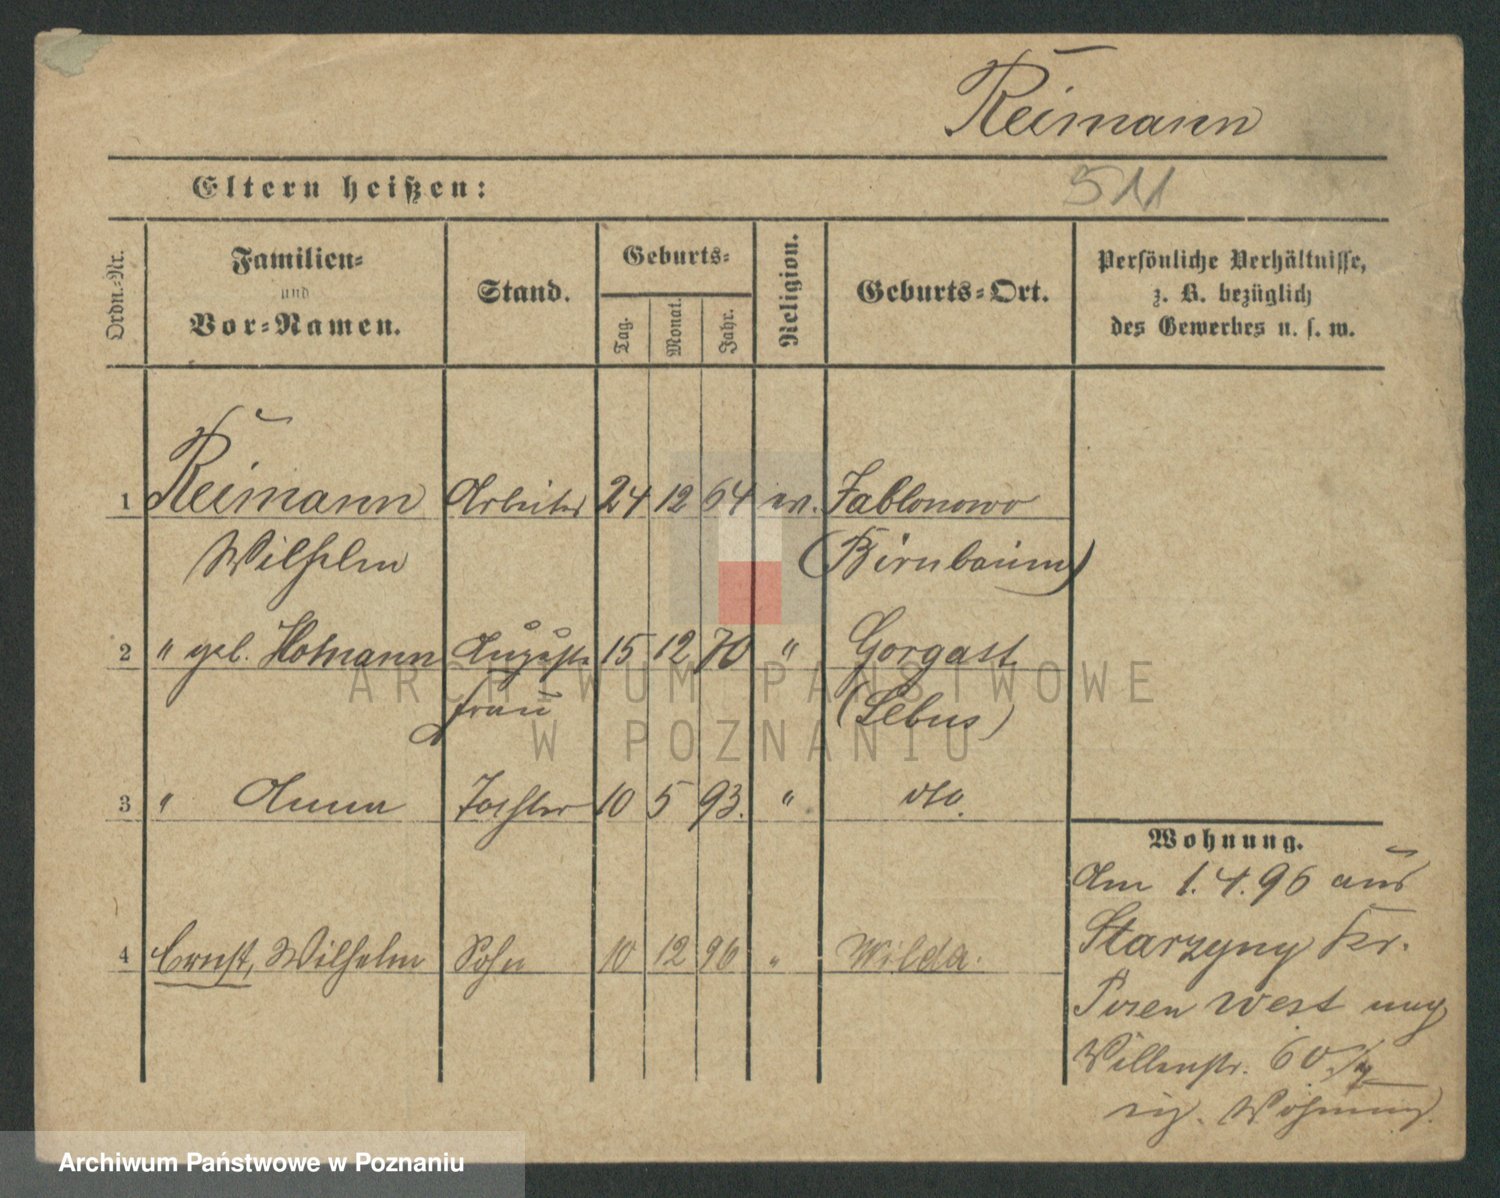 Reimann
Eltern heißen:
511
Ordn.-Nr.
Familien-
und
Vor-Namen.
Stand.
Geburts-
Tag.
Monat.
Jahr.
Religion.
Geburts-Ort.
Persönliche Verhältnisse,
z. B. bezüglich
des Gewerbes u. s. w.
1 Reimann Arbeiter 24 12 64 ev. Jablonowo
Wilhelm (Birnbaum)
2 " geb. Hofmann Auguste 15 12 70 " Gorgast
frau (Lebus)
3 " Anna Tochter 10 5 93. " dto.
4 Ernst, Wilhelm Sohn 10 12 96 " Wilda.
Wohnung.
Am 1.4.96 aus
Starzyny Kr.
Posen West
60
Wohnung.
ARCHIWUM PAŃSTWOWE
W POZNANIU
Archiwum Państwowe w Poznaniu